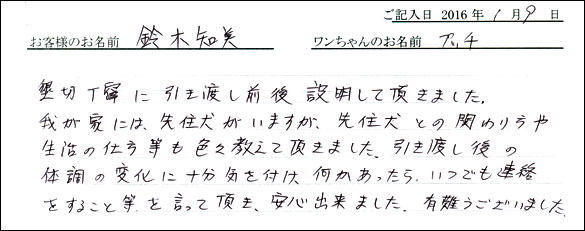 ご記入日 2016年 1月 9日
お客様のお名前 鈴木知美 ワンちゃんのお名前 アッチ
懇切丁寧に引き渡し前後説明して頂きました。
我が家には、先住犬がいますが、先住犬との関わり方や
生活の仕方等も色々教えて頂きました。引き渡し後の
体調の変化に十分気を付け、何かあったら、いつでも連絡
をすること等を言って頂き、安心出来ました。有難うございました。